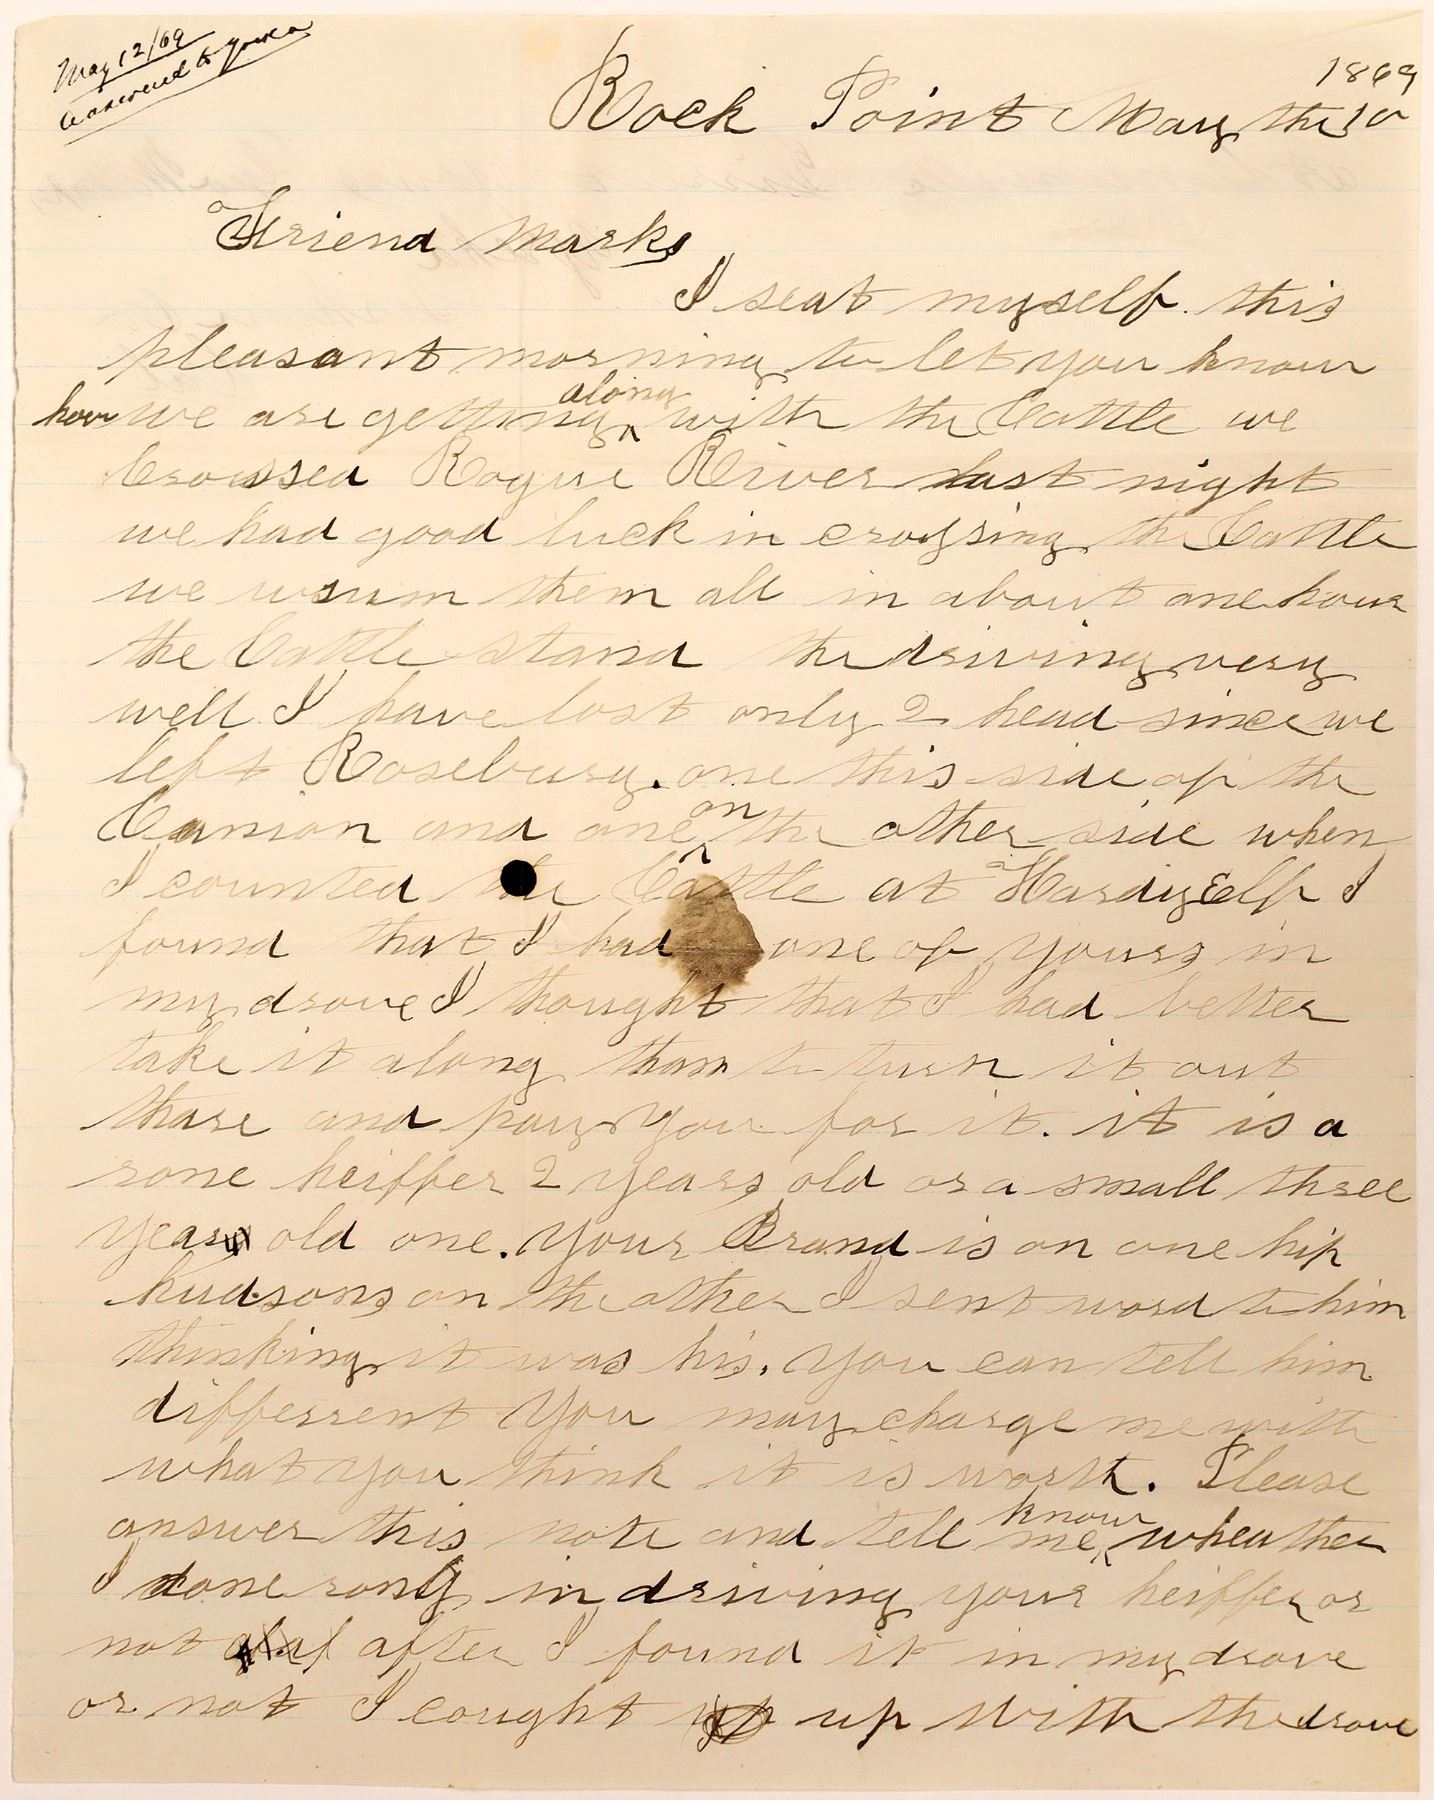 May 12/69
Answered to Yreka
1869
Rock Point May the 10
Friend Marks
I seat myself this
pleasant morning to let you know
how we are getting along with the Cattle we
Croussed Rogue River last night
we had good luck in crossing the Cattle
we wsum them all in about one hour
the Cattle stand the driving very
well I have lost only 2 head since we
left Roseburg. one this side of the
Canion and one on the other side when
I counted the Cattle at Hardy Elfs I
found that I had one of yours in
my drove I thought that I had better
take it along than to turn it out
thare and pay you for it. it is a
rone heiffer 2 years old or a small three
year old one. Your Brand is on one hip
hudsons on the other I sent word to him
thinking it was his. You can tell him
differrent You may charge me with
what you think it is worth. Please
answer this note and tell me know wheather
I done rong in driving your heiffer or
not after I found it in my drove
or not I cought up with the drove